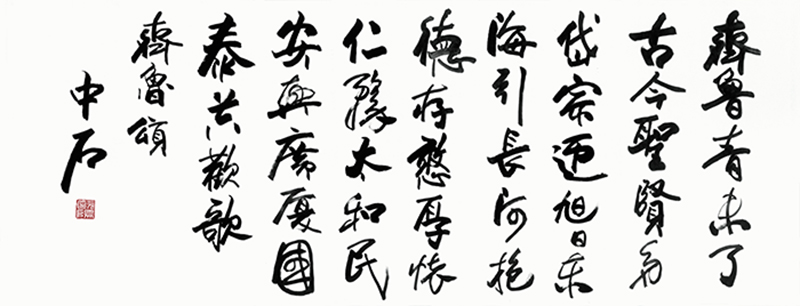 齊魯青未了
古今聖賢多
岱宗迎旭日東
海引長河抱
德存憨厚懷
仁太和民
安興廣厦國
泰共歡歌
齊魯頌
中石